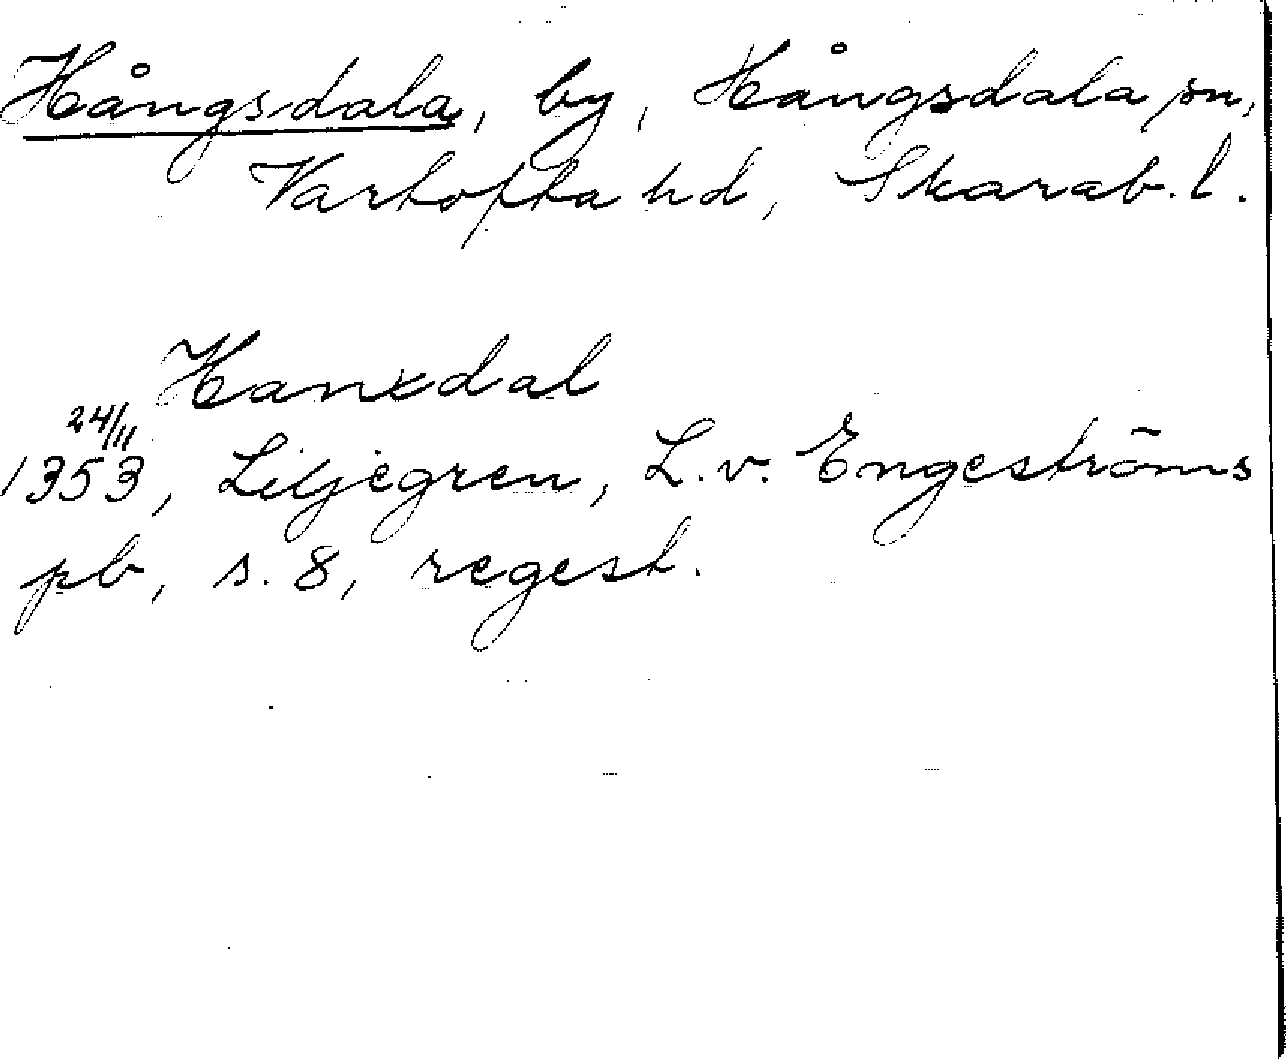 Hångsdala, by, Hångsdala sn,
Vartofta hd, Skarab. l.
Hanxdal
24/11
1353, Liljegren, L. v. Engeströms
pb, s. 8, regest.